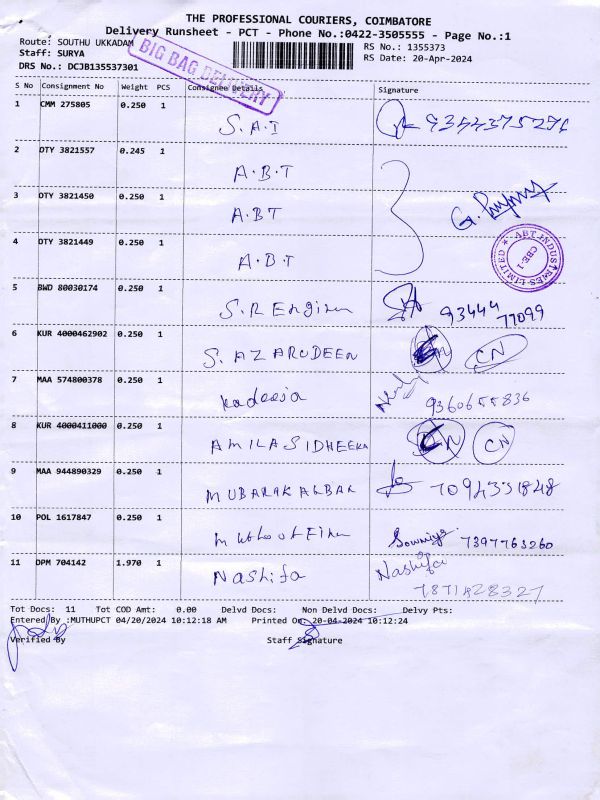 THE PROFESSIONAL COURIERS, COIMBATORE
Delivery Runsheet - PCT - Phone No.:0422-3505555 - Page No.:1
Route: SOUTHU UKKADAM
RS No.: 1355373
Staff: SURYA
RS Date: 20-Apr-2024
DRS No.: DCJB135537301
BIG BAG DELIVERY
S No Consignment No Weight PCS Consignee Details Signature
1 CMM 275805 0.250 1 S.A.I 9344375296
2 DTY 3821557 0.245 1 A.B.T
3 DTY 3821450 0.250 1 A.BT
4 DTY 3821449 0.250 1 A.B.T
ABT INDUSTRIES LIMITED
CBE-1
5 BWD 80030174 0.250 1 S.R Engineer 93444
77099
6 KUR 4000462902 0.250 1 S. AZARUDEEN CN
7 MAA 574800378 0.250 1 Kadeeja 9360655836
8 KUR 4000411000 0.250 1 AMILA SIDHEEKA CN
9 MAA 944890329 0.250 1 MUBARAK AKBAR 7094331848
10 POL 1617847 0.250 1 Muthoot Finn Sowmiya 7397763260
11 DPM 704142 1.970 1 Nashifa Nashifa
7871428327
Tot Docs: 11 Tot COD Amt: 0.00 Delvd Docs: Non Delvd Docs: Delvy Pts:
Entered By :MUTHUPCT 04/20/2024 10:12:18 AM Printed On: 20-04-2024 10:12:24
Verified By Staff Signature